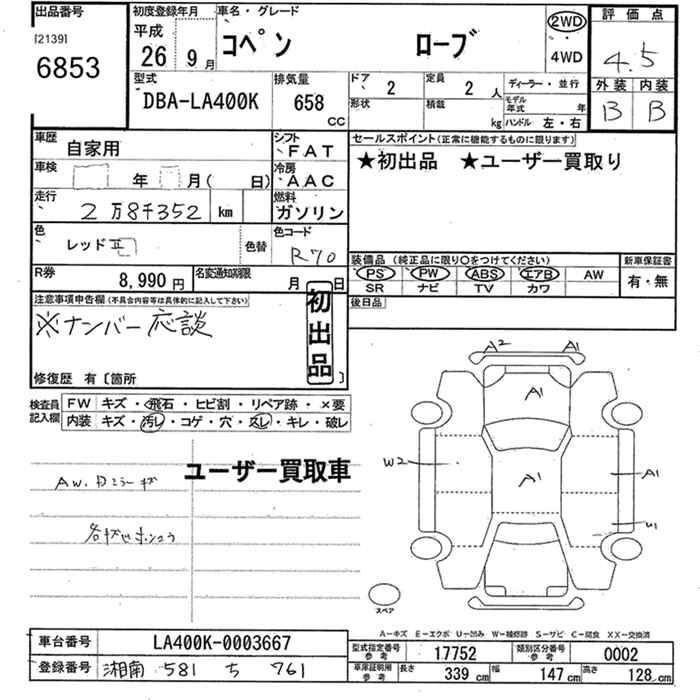 出品番号 初度登録年月 車名・グレード 2WD 評価点
[2139] 平成
6853 26 9月 コペン ローブ 4WD 4.5
型式 排気量 ドア 2 定員 2人 ディーラー・並行 外装 内装
DBA-LA400K 658 CC 形状 積載 kg モデル年式 年 B B
ハンドル 左・右
車歴 自家用 シフト FAT セールスポイント(正常に機能するものに限ります)
車検 年 月( 日) 冷房 AAC ★初出品 ★ユーザー買取り
走行 2万8千352 km 燃料 ガソリン
色 レッド 色替 色コード R70
装備品(純正品に限り○をつけてください) 新車保証書
R券 8,990円 名変通知期限 月 日 PS PW ABS エアB AW 有・無
SR ナビ TV カワ
注意事項申告欄(不具合内容等は具体的に記入して下さい) 後日品
※ナンバー応談 初出品
修復歴 有〔箇所 〕
検査員記入欄 FW キズ・飛石・ヒビ割・リペア跡・×要
内装 キズ・汚レ・コゲ・穴・スレ・キレ・破レ
A2 A1
A1
ユーザー買取車
W2 A1 A1
AW、Dミラーキズ
U1
スペア
A-キズ E-エクボ U-凹み W-補修跡 S-サビ C-腐食 XX-交換済
車台番号 LA400K-0003667 型式指定番号参考 17752 類別区分番号参考 0002
登録番号 湘南 581 ち 761 車庫証明用参考 長さ 339cm 幅 147cm 高さ 128cm